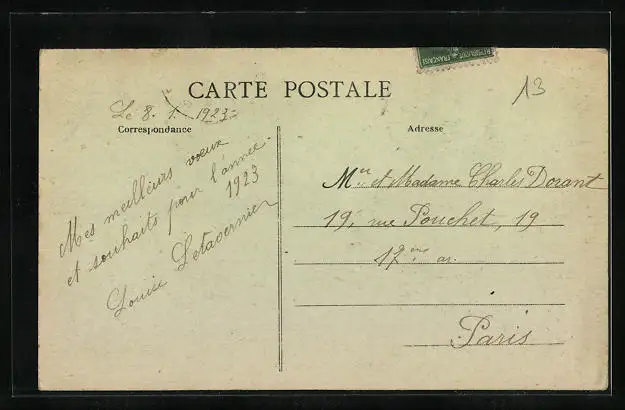 REPUBLIQUE FRANCAISE
CARTE POSTALE
13
Le 8. 1. 1923
Correspondance
Mes meilleurs vœux
et souhaits pour l'année
1923
Louise Letavernier
Adresse
Mr et Madame Charles Dorant
19, rue Pouchet, 19
17ème ar.
Paris